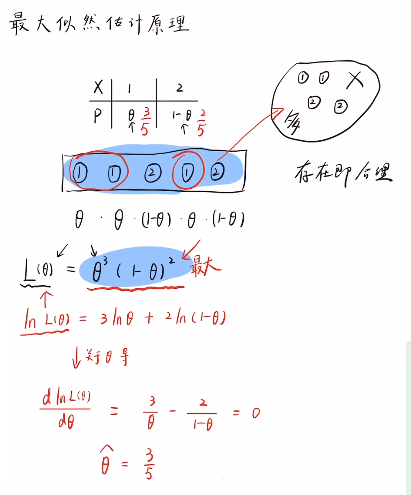 最大似然估计原理
X 1 2
P θ 3/5 1-θ 2/5
① ① ② X
② ②
① ① ② ① ②
存在即合理
θ · θ · (1-θ) · θ · (1-θ)
L(θ) = θ³ (1-θ)² 最大
ln L(θ) = 3lnθ + 2ln(1-θ)
↓ 关于θ 导
d ln L(θ)/dθ = 3/θ - 2/(1-θ) = 0
θ̂ = 3/5